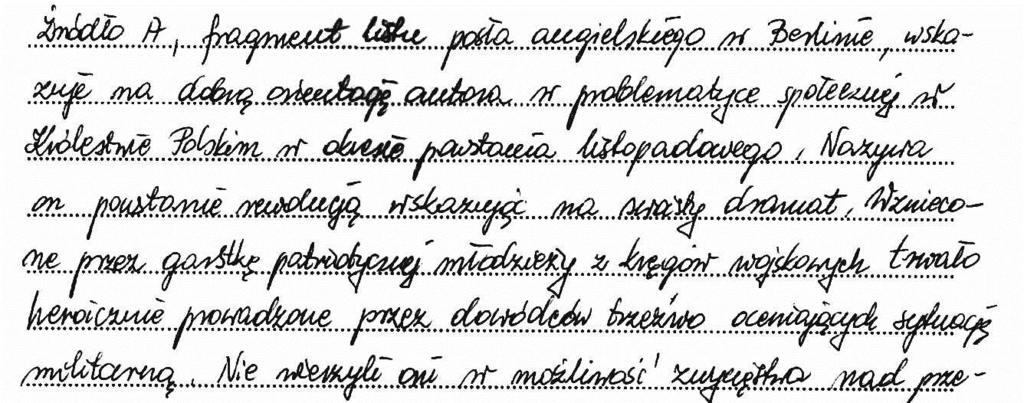 Źródło A, fragment listu posła angielskiego w Berlinie, wska-
zuje na dobrą orientację autora w problematyce społecznej w
Królestwie Polskim w okresie powstania listopadowego. Nazywa
on powstanie rewolucją wskazując na swoisty dramat. Wznieco-
ne przez garstkę patriotycznej młodzieży z kręgów wojskowych trwało
heroicznie prowadzone przez dowódców trzeźwo oceniających sytuację
militarną. Nie wierzyli oni w możliwość zwycięstwa nad prze-